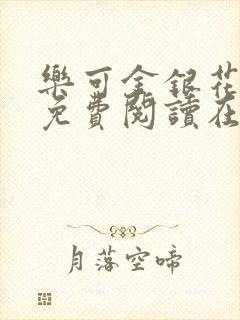 樂可金銀花
免費閱讀在
月落空啼